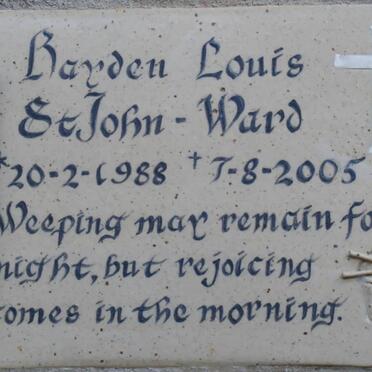 Hayden Louis
St John-Ward
*20-2-1988 †7-8-2005
Weeping may remain fo
night, but rejoicing
comes in the morning.